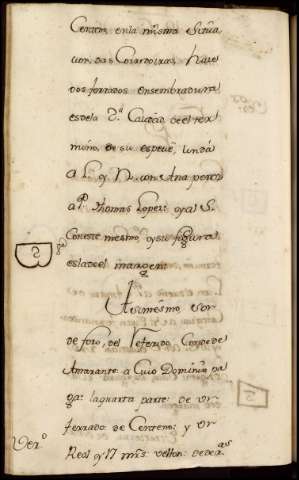 Centeno, en la misma Situa
cion das Corardoiras, hace
dos ferrados en sembradura
es de la 2ª Calidad, de el ter
mino, de su especie, linda
a L. y N. con Ana perez
a P. Thomas Lopez: y a S.
Con este mesmo y su figura
es la de el margen:
2
Assimesmo, por
de foro, del Referido Conde de
Amarante: a Cuio Dominio pa
ga: la quarta parte: de vn
ferrado de Centeno: y vn
Real y 17 mrs. vellon: de dra